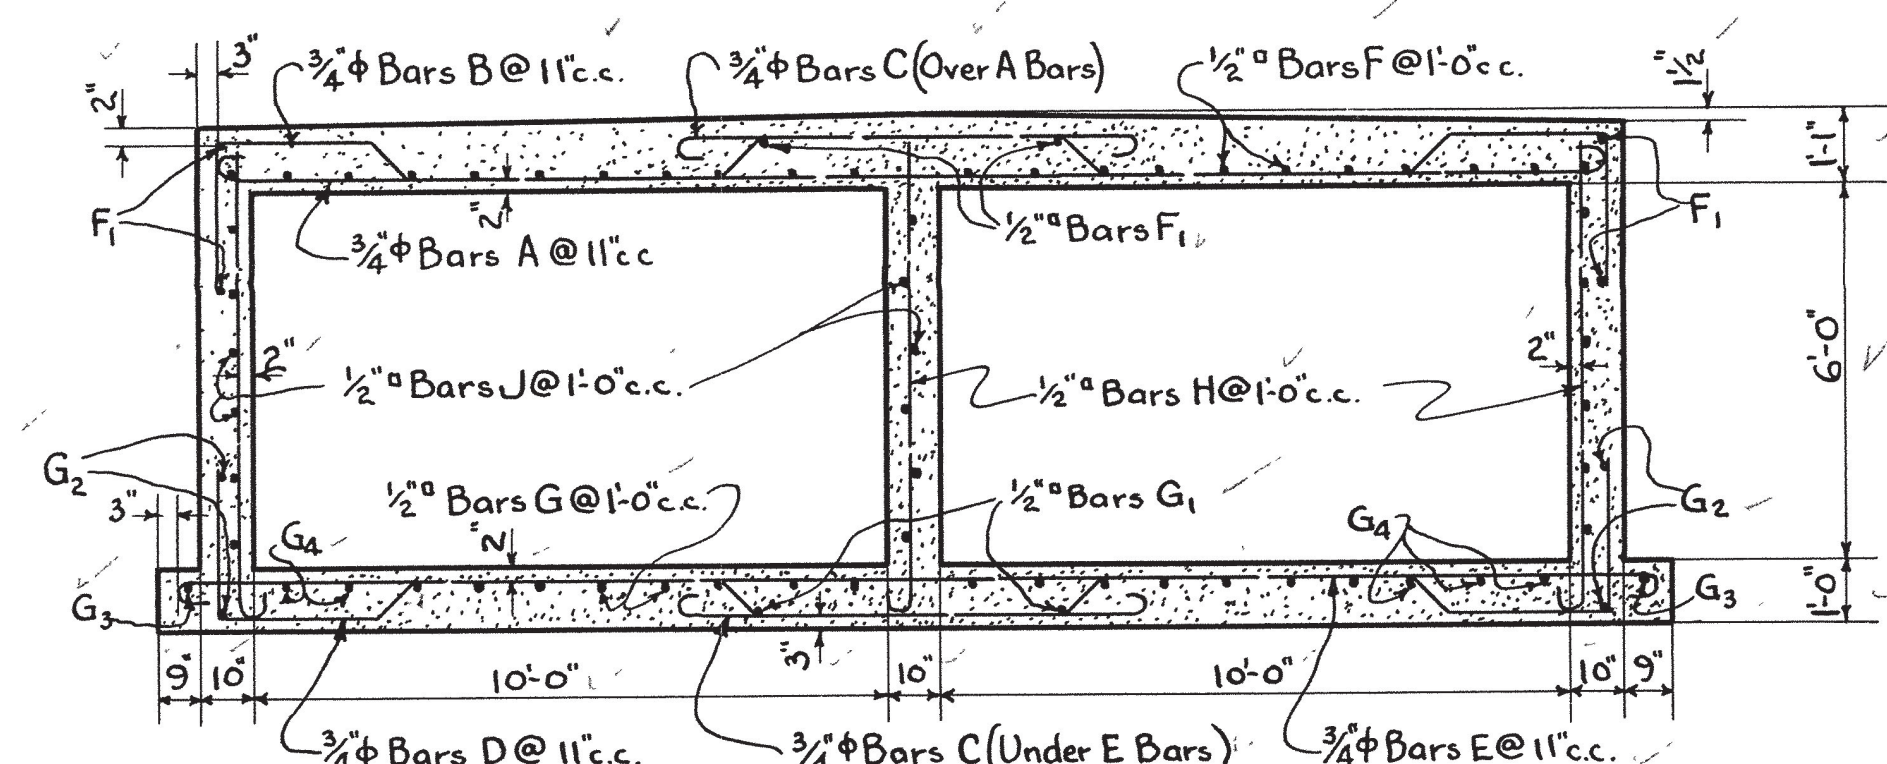 3"
¾"ϕ Bars B @ 11"c.c.
¾"ϕ Bars C (Over A Bars)
½"▫ Bars F @ 1'-0"c c.
1½"
2"
1'-1"
F₁
2"
½"▫ Bars F₁
F₁
¾"ϕ Bars A @ 11"c c
2"
½"▫ Bars J @ 1'-0"c.c.
½"▫ Bars H @ 1'-0"c.c.
2"
6'-0"
G₂
3"
½"▫ Bars G @ 1'-0"c.c.
½"▫ Bars G₁
G₂
G₄
2"
G₄
G₃
G₃
1'-0"
3"
9"
10"
10'-0"
10"
10'-0"
10"
9"
¾"ϕ Bars D @ 11"c.c.
¾"ϕ Bars C (Under E Bars)
¾"ϕ Bars E @ 11"c.c.